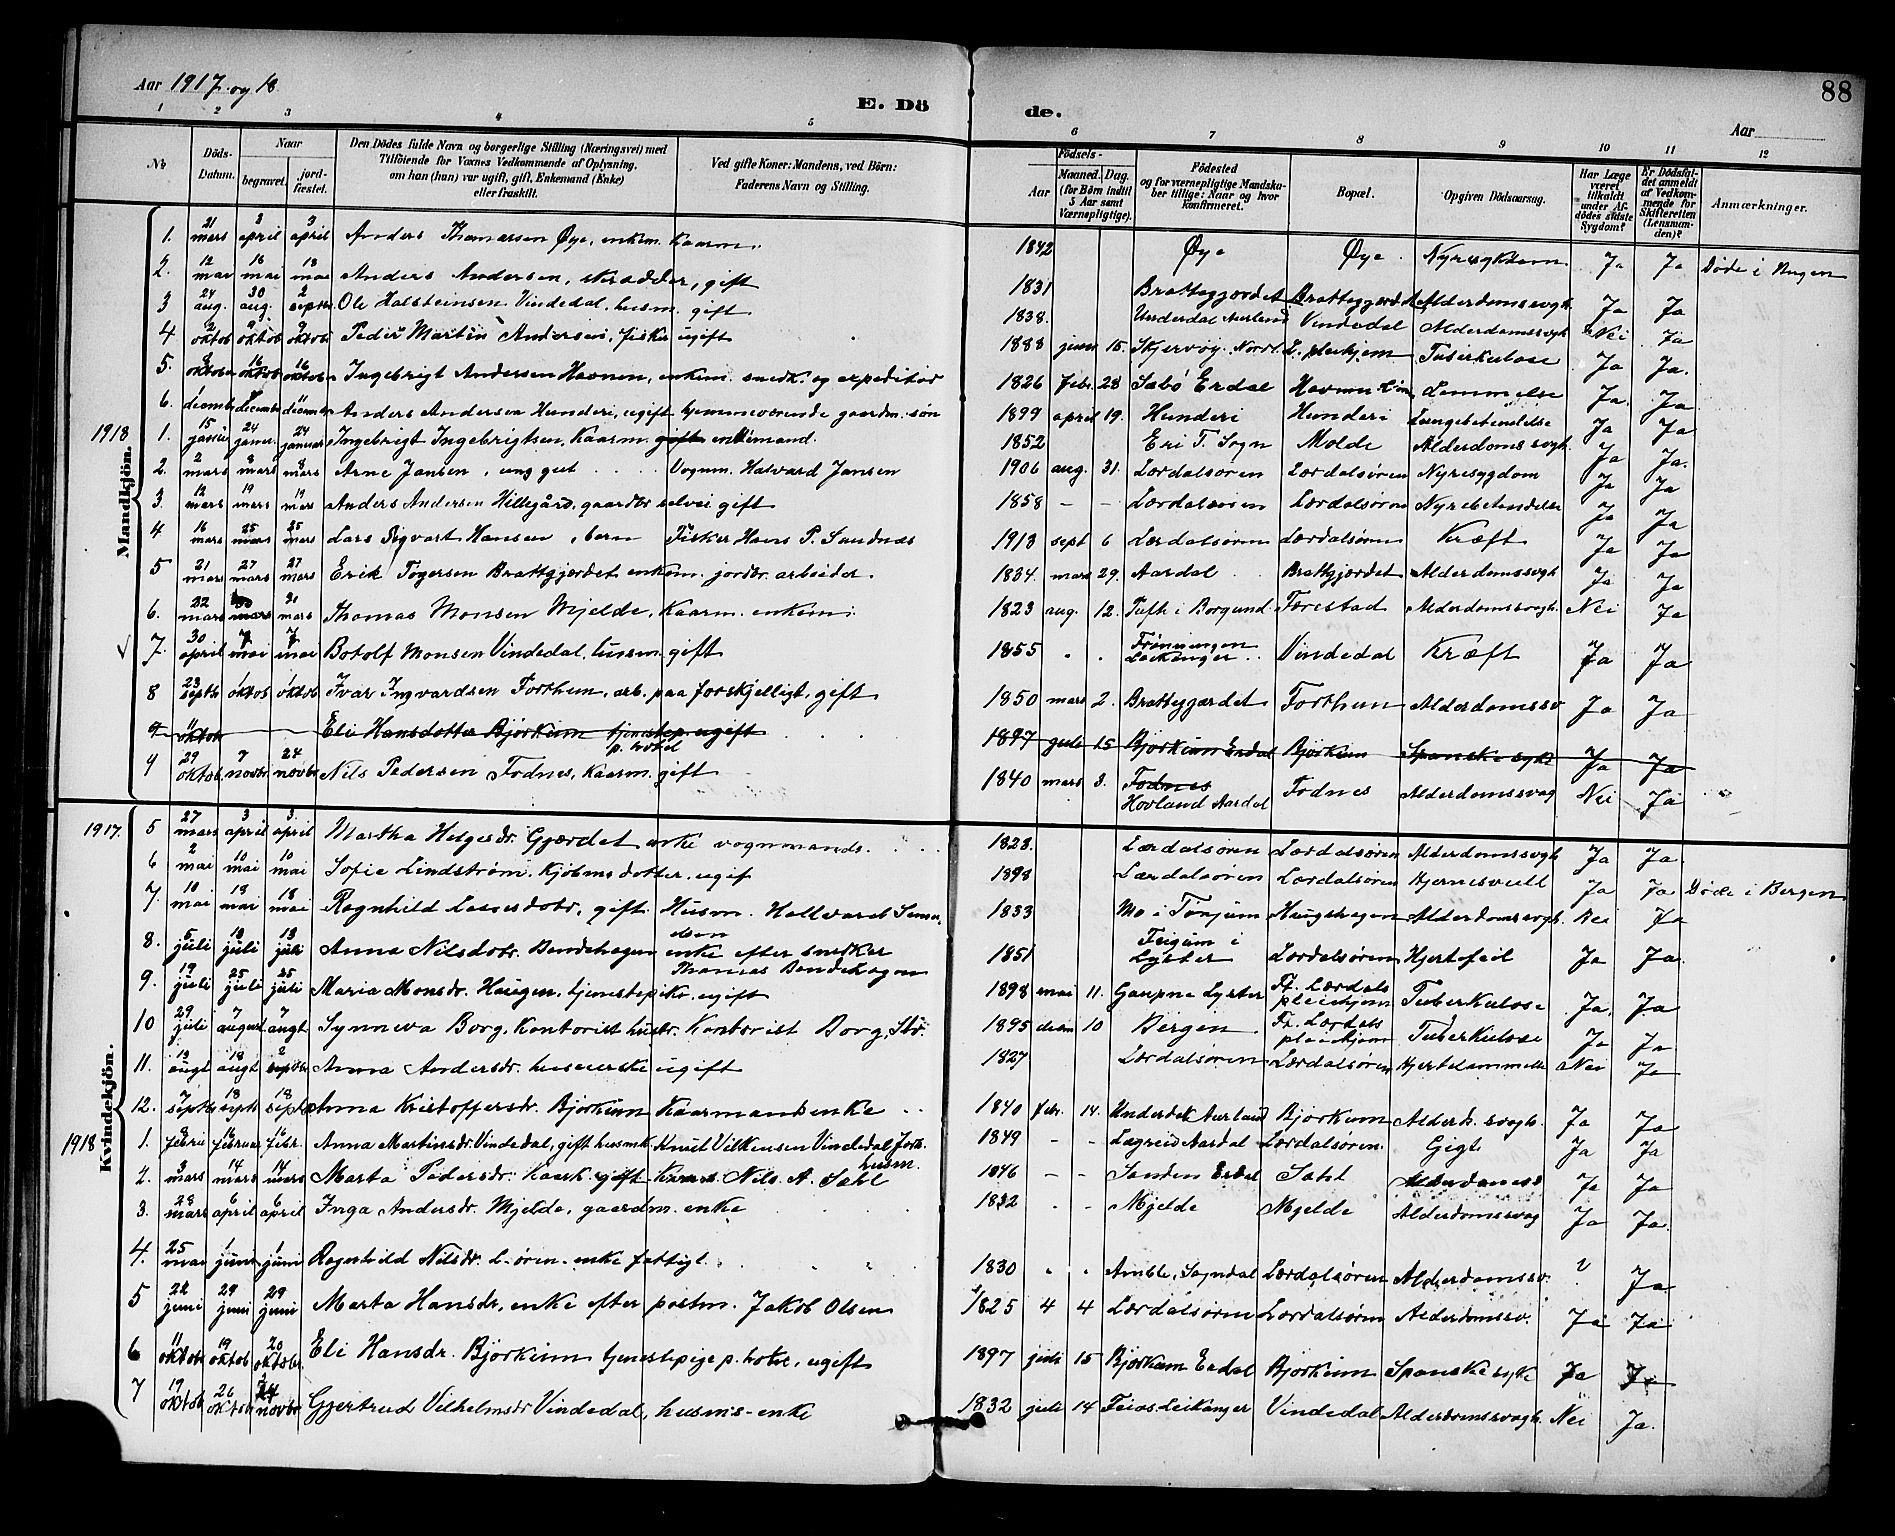 Aar 1917 og 18
88
E. Dö de.
Aar
1 2 3 4 5 6 7 8 9 10 11 12
No
Döds-Datum.
Naar
begravet.
jord-fæstet.
Den Dödes fulde Navn og borgerlige Stilling (Næringsvei) med Tilföiende for Voxnes Vedkommende af Oplysning, om han (hun) var ugift, gift, Enkemand (Enke) eller fraskilt.
Ved gifte Koner: Mandens, ved Börn: Faderens Navn og Stilling.
Födsels-
Aar
Maaned. Dag.
(for Börn indtil 5 Aar samt Værnepligtige).
Födested og for værnepligtige Mandska-ber tillige: Naar og hvor konfirmeret.
Bopæl.
Opgiven Dödsaarsag.
Har Læge været tilkaldt under Af-dödes sidste Sygdom?
Er Dödsfal-det anmeldt af Vedkom-mende for Skifteretten (Lensman-den)?
Anmærkninger.
Mandkjön.
1. 21 mars 3 april 3 april Anders Thomassen Øye, enkem. Kaarm. 1842 Øye Øye Nyresykdom Ja Ja Døde i
2. 12 mai 16 mai 18 mai Anders Andersen, skrædder, gift 1831 Brattegjerdet Brattegjerdet Alderdomssvagh. Ja Ja
3 24 aug. 30 aug. 2 septbr Ole Halsteinsen Vindedal, husm. gift 1838. Underdal Aurland Vindedal Alderdomssvagh Nei Ja
4 2 oktob 9 oktob 9 oktob Peder Martin Andersen, fisker ugift 1888 15. Skjervøy, Nordl. L. pleiehjem Tuberkulose Ja Ja.
5. 8 oktob 16 oktob 16 oktob Ingebrigt Andersen Hovnen, enkem. snedk. og expeditør 1826 febr. 28 Sæbö Erdal Lammelse Ja. Ja
6. decembr decembr 11 decembr Anders Andersen Hunderi, ugift hjemmeværende gaardm. søn 1899 april 19. Hunderi Hunderi Lungebetændelse Ja Ja
1918 1. 15 januar 24 januar 24 januar Ingebrigt Ingebrigtsen, Kaarm. gift enkemand. 1852 Eri I. Sogn Molde Alderdoms svagh. Ja Ja.
2. 2 mars 8 mars 8 mars Arne Jansen, ung gut Vognm. Halvard Jansen 1906 aug. 31. Lærdalsören Lærdalsören Nyresygdom Ja Ja
3. 12 mars 19 mars 19 mars Anders Andersen Hillegård, gaardbr selvei gift 1858 - - Lærdalsören Lærdalsören Nyrebetændelse Ja Ja
4 16 mars 25 mars 25 mars Lars Sigvart Hansen, barn Fisker Hans P. Sundnes 1913 sept 6 Lærdalsören Lærdalsören Kræft Ja Ja
5 21 mars 27 mars 27 mars Erik Togersen Brattgjærdet enkem. jordbr. arbeider. 1834. mars 29. Aardal Brattgjordet Alderdomssvagh. Ja Ja
6. 22 mars mars 31 mars Thomas Monsen Mjelde, Kaarm. enkem: 1823 aug. 12. Tufte i Borgund Færestad Alderdomssvagh. Nei Ja
7. 30 april 7 mai 7 mai Botolf Monsen Vindedal, husm. gift 1855 Frønningen Leikanger Vindedal Kræft Ja Ja
8 23 septbr 1 oktob 1 oktob Ivar Ingvardsen Forthun, arb. paa forskjelligt, gift 1850 mars 2. Brattegjærdet Forthun Alderdomssv. Ja Ja
9 11 oktob - - Eli Hansdotter Björkum tjenestep. p. hotel ugift 1897 juli 15 Björkum Erdal Björkum Spanske syke Ja Ja
9 29 oktob 7 novbr 24 novbr Nils Pedersen Fodnes, Kaarm. gift 1840 mars 3. Fodnes Hovland Aardal Fodnes Alderdomssvag Nei Ja
Kvindekjön.
1917. 5 27 mars 3 april 3. april Martha Helgesdr. Gjærdet enke vognmands. 1823. Lærdalsören Lærdalsören Alderdomssvagh Ja Ja
6 2 mai 10 mai 10 mai Sofie Lindström, Kjöbmsdotter. ugif 1898 Lærdalsören Lærdalsören Ja Ja Døde i Bergen
7. 10 mai 18 mai 18 mai Ragnhild Lassesdotr, gift Husm. Hallvard 1833 Mo i Tønjum Haugshagen Alderdomssvagh. Nei Ja
8. 5 juli 13 juli 13 juli Anna Nilsdotr. Bondehagen enke efter snedker Thomas Bondehagen 1851 Feigum i Lyster Lærdalsören Hjertefeil Ja Ja.
9. 19 juli 25 juli 25 juli Maria Monsdr. Haugen, tjenestepike, ugift 1898 mai 11. Gaupne Lyster Ft. Lærdals pleiehjem Tuberkulose Ja. Ja
10 29 juli 7 august 7 augt Synneva Borg, Kontorist hustr. Kontorist Borg, 1895 10 Bergen. Ft. Lærdals pleiehjem Tuberkulose Ja Ja
11. 13 augt 18 augt 2 septbr Anna Andersdr. huseierske ugift 1827 Lærdalsören Lærdalsören Nei Ja
12. 7 septbr 18 septb 18 septb Anna Kristoffersdr. Björkum Kaarmandsenke 1840 febr. 14. Underdal Aurland Björkum Alderd. svagh. Ja Ja
1918 1. 8 februar 16 februar 16 febr. Anna Martinsdr. Vindedal, gift husmk. Knut Vilhemsen Vindedal husm. 1849 - - Lægreid Aardal Lærdalsören. Gigt Ja Ja
2. 3 mars 14 mars 14 mars Marta Pedersdr. Kaark. gift Nils A. Sahl 1846 - - Sanden Erdal Sahl Ja Ja
3. 28 mars 6 april 6 april Inga Andersdr. Mjelde, gaardm. enke 1832 - - Mjelde Mjelde Alderdomssvag Ja Ja.
4. 25 mai 1 juni 1 juni Ragnhild Nilsdr. L-ören. enke fattigl. 1830 Amble, Sogndal Lærdalsören Alderdomssv. ? Ja
5 22 juni 29 juni 29 juni Marta Hansdr, enke efter postm. Jakob Olsen 1825 4 4 Lærdalsören Lærdalsören Alderdomssv. Ja Ja
6 11 oktob 19 oktob 20 oktobr Eli Hansdr. Björkum tjenestepige p. hotel, ugift 1897 juli 15 Björkum Erdal Björkum Spanske syke Ja Ja
7 19 oktob 26 oktobr 24 novbr Gjertrud Vilhelmsdr Vindedal, husms-enke 1832 juli 14 Feios Leikanger Vindedal Alderdomssvagh. Nei Ja.